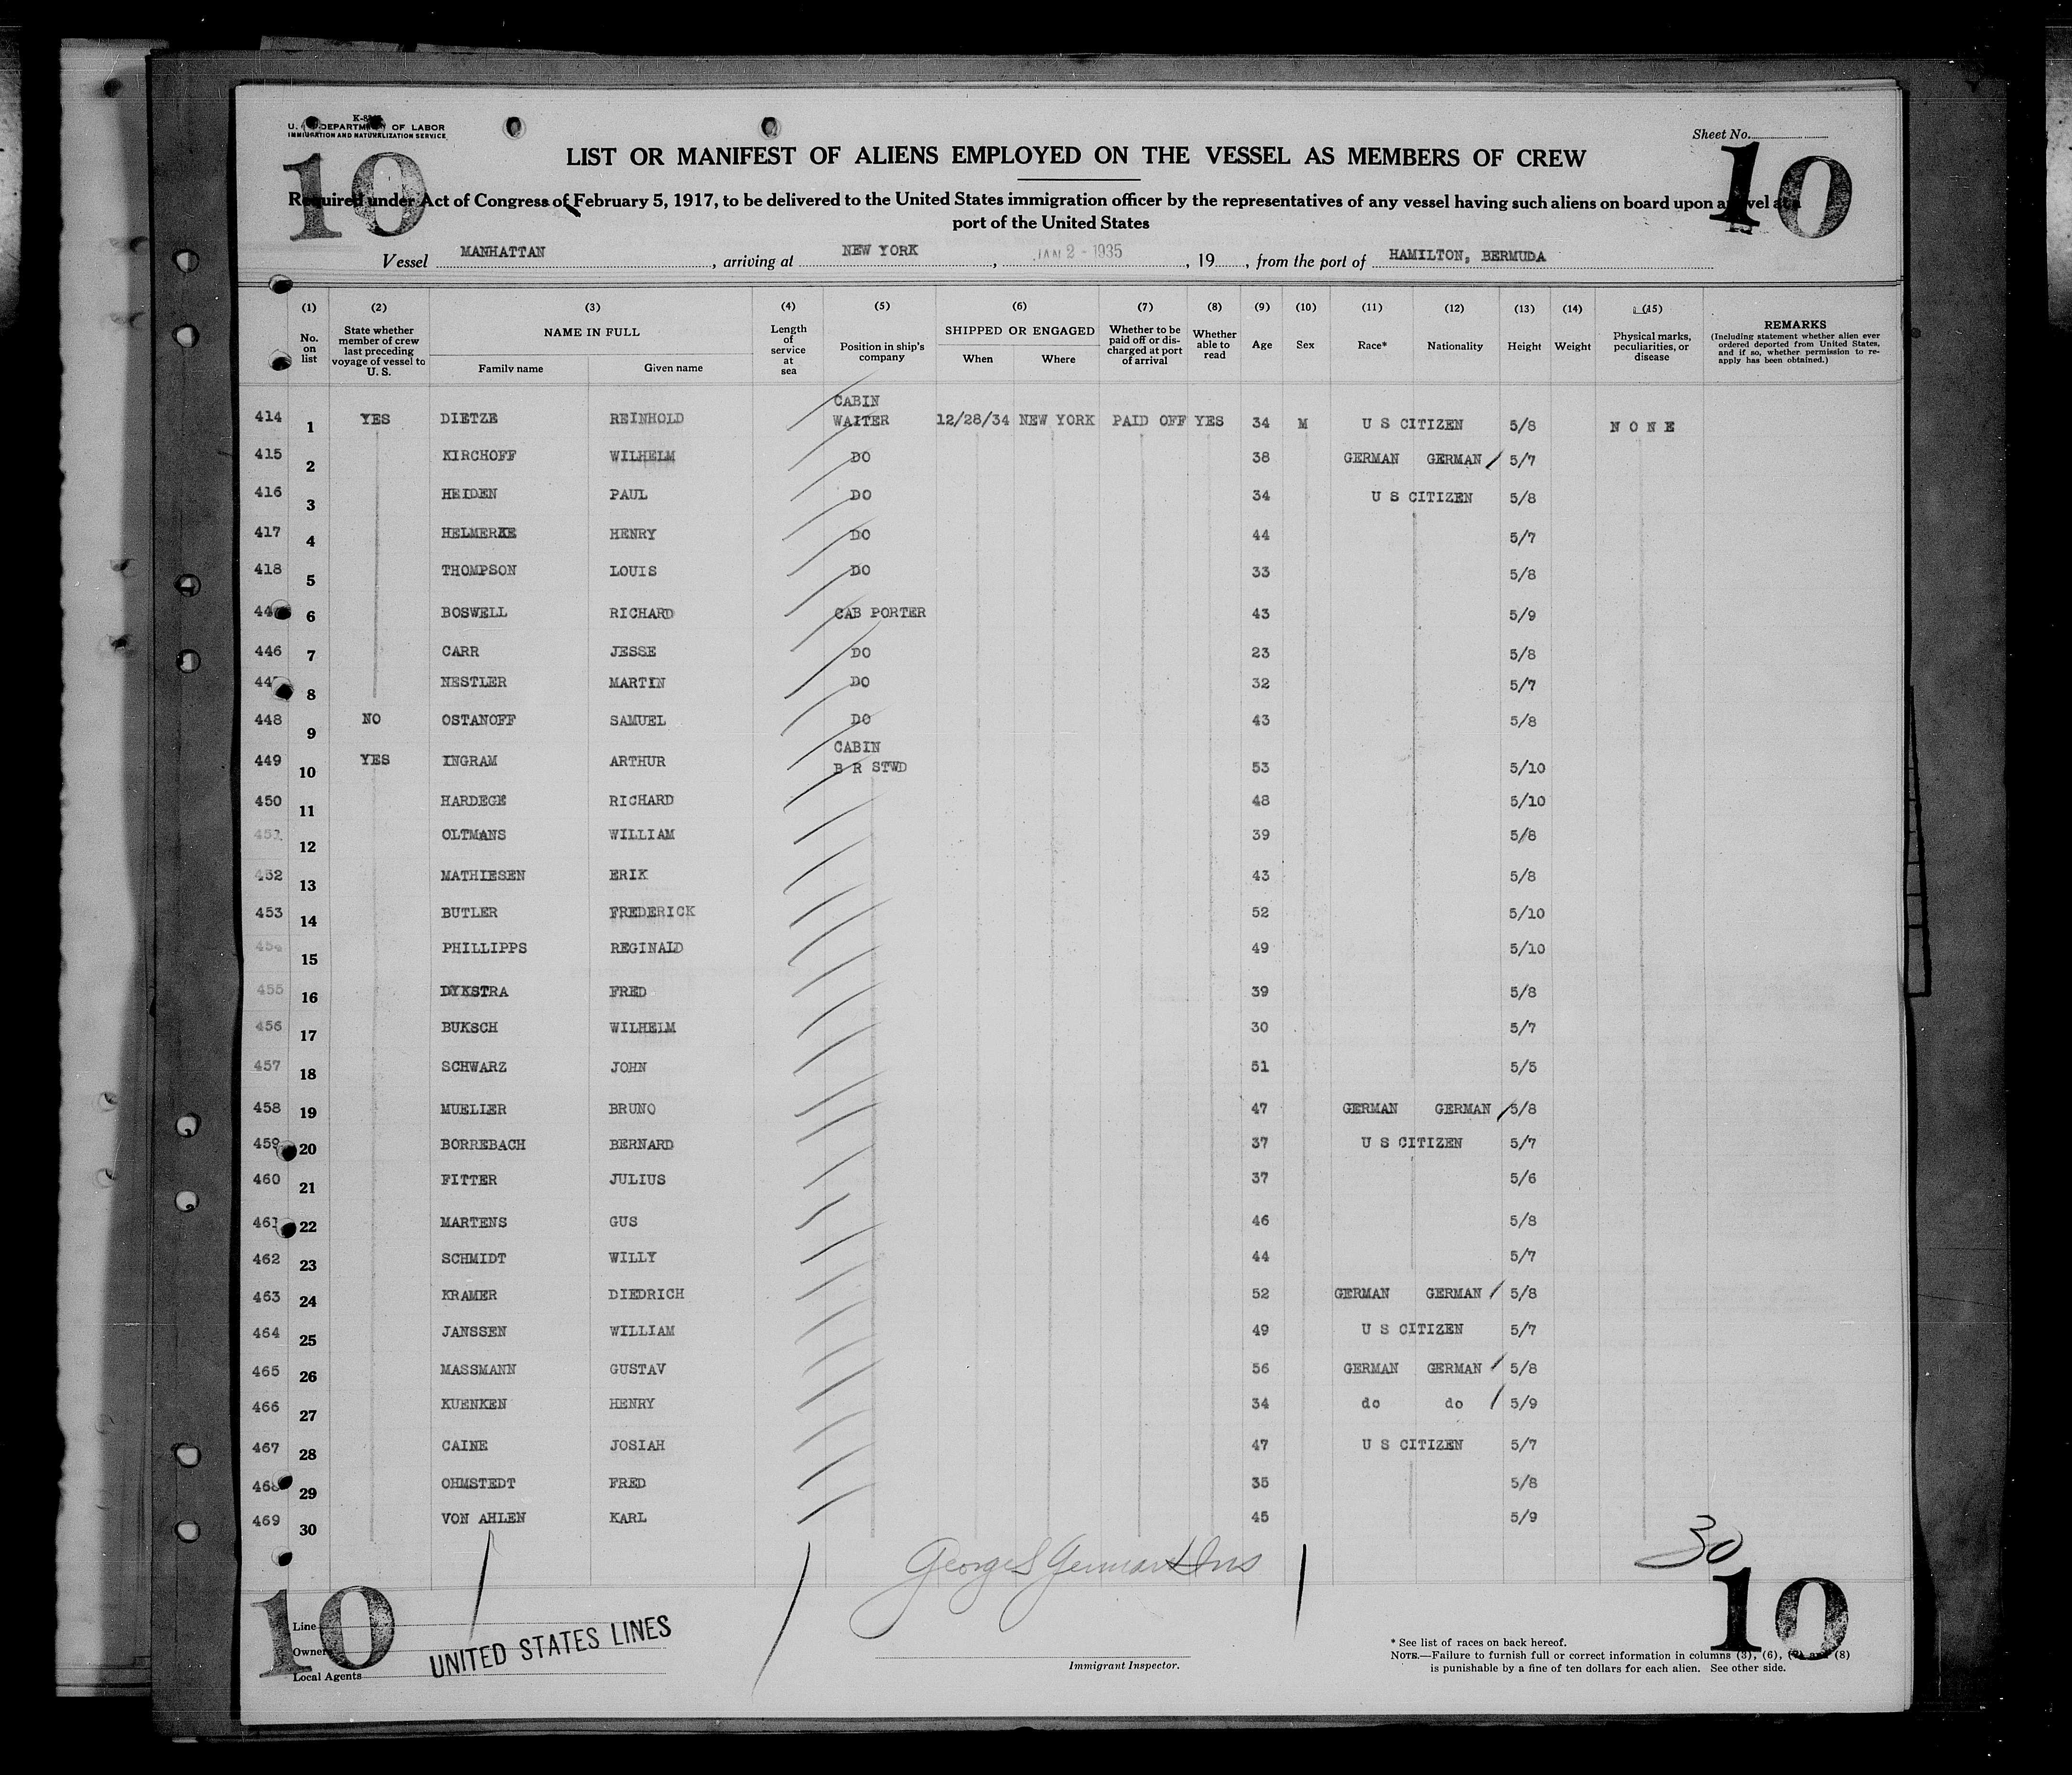 K-8
U. DEPARTMENT OF LABOR
IMMIGRATION AND NATURALIZATION SERVICE
Sheet No.
10
10
LIST OR MANIFEST OF ALIENS EMPLOYED ON THE VESSEL AS MEMBERS OF CREW
Required under Act of Congress of February 5, 1917, to be delivered to the United States immigration officer by the representatives of any vessel having such aliens on board upon arrival at a
port of the United States
Vessel MANHATTAN, arriving at NEW YORK, JAN 2 - 1935, 19, from the port of HAMILTON, BERMUDA
(1) (2) (3) (4) (5) (6) (7) (8) (9) (10) (11) (12) (13) (14) (15)
No. on list
State whether member of crew last preceding voyage of vessel to U. S.
NAME IN FULL
Family name Given name
Length of service at sea
Position in ship's company
SHIPPED OR ENGAGED
When Where
Whether to be paid off or discharged at port of arrival
Whether able to read
Age
Sex
Race*
Nationality
Height
Weight
Physical marks, peculiarities, or disease
REMARKS
(Including statement whether alien ever ordered deported from United States, and if so, whether permission to re-apply has been obtained.)
414 1 YES DIETZE REINHOLD CABIN WAITER 12/28/34 NEW YORK PAID OFF YES 34 M U S CITIZEN 5/8 N O N E
415 2 KIRCHOFF WILHELM DO 38 GERMAN GERMAN 5/7
416 3 HEIDEN PAUL DO 34 U S CITIZEN 5/8
417 4 HELMERKE HENRY DO 44 5/7
418 5 THOMPSON LOUIS DO 33 5/8
44 6 BOSWELL RICHARD CAB PORTER 43 5/9
446 7 CARR JESSE DO 23 5/8
447 8 NESTLER MARTIN DO 32 5/7
448 9 NO OSTANOFF SAMUEL DO 43 5/8
449 10 YES INGRAM ARTHUR CABIN B R STWD 53 5/10
450 11 HARDEGE RICHARD 48 5/10
451 12 OLTMANS WILLIAM 39 5/8
452 13 MATHIESEN ERIK 43 5/8
453 14 BUTLER FREDERICK 52 5/10
454 15 PHILLIPPS REGINALD 49 5/10
455 16 DYKSTRA FRED 39 5/8
456 17 BUKSCH WILHELM 30 5/7
457 18 SCHWARZ JOHN 51 5/5
458 19 MUELLER BRUNO 47 GERMAN GERMAN 5/8
459 20 BORREBACH BERNARD 37 U S CITIZEN 5/7
460 21 FITTER JULIUS 37 5/6
461 22 MARTENS GUS 46 5/8
462 23 SCHMIDT WILLY 44 5/7
463 24 KRAMER DIEDRICH 52 GERMAN GERMAN 5/8
464 25 JANSSEN WILLIAM 49 U S CITIZEN 5/7
465 26 MASSMANN GUSTAV 56 GERMAN GERMAN 5/8
466 27 KUENKEN HENRY 34 do do 5/9
467 28 CAINE JOSIAH 47 U S CITIZEN 5/7
468 29 OHMSTEDT FRED 35 5/8
469 30 VON AHLEN KARL 45 5/9
30
10
10
Line
Owner
Local Agents
UNITED STATES LINES
Immigrant Inspector.
* See list of races on back hereof.
NOTE.—Failure to furnish full or correct information in columns (3), (6), (7) and (8)
is punishable by a fine of ten dollars for each alien. See other side.